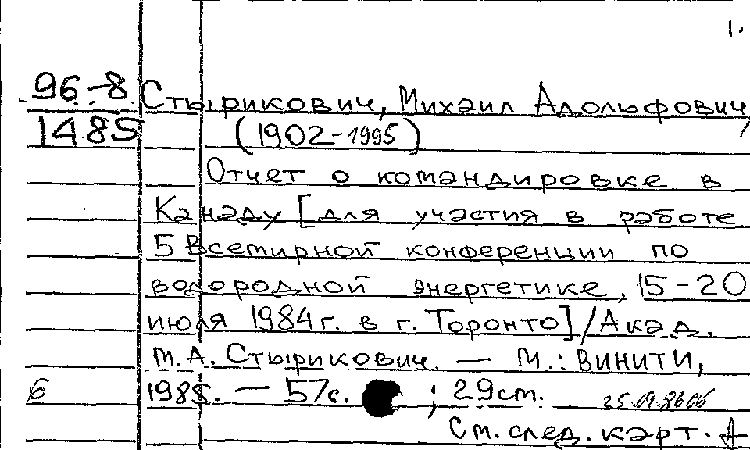 1.
96-8 Стырикович, Михаил Адольфович,
1485 (1902-1995)
Отчет о командировке в
Канаду [для участия в работе
5 Всемирной конференции по
водородной энергетике, 15-20
июля 1984 г. в г. Торонто] / Акад.
М.А. Стырикович. — М.: ВИНИТИ,
6 1985. — 57 с. ; 29 см.
См. след. карт. А